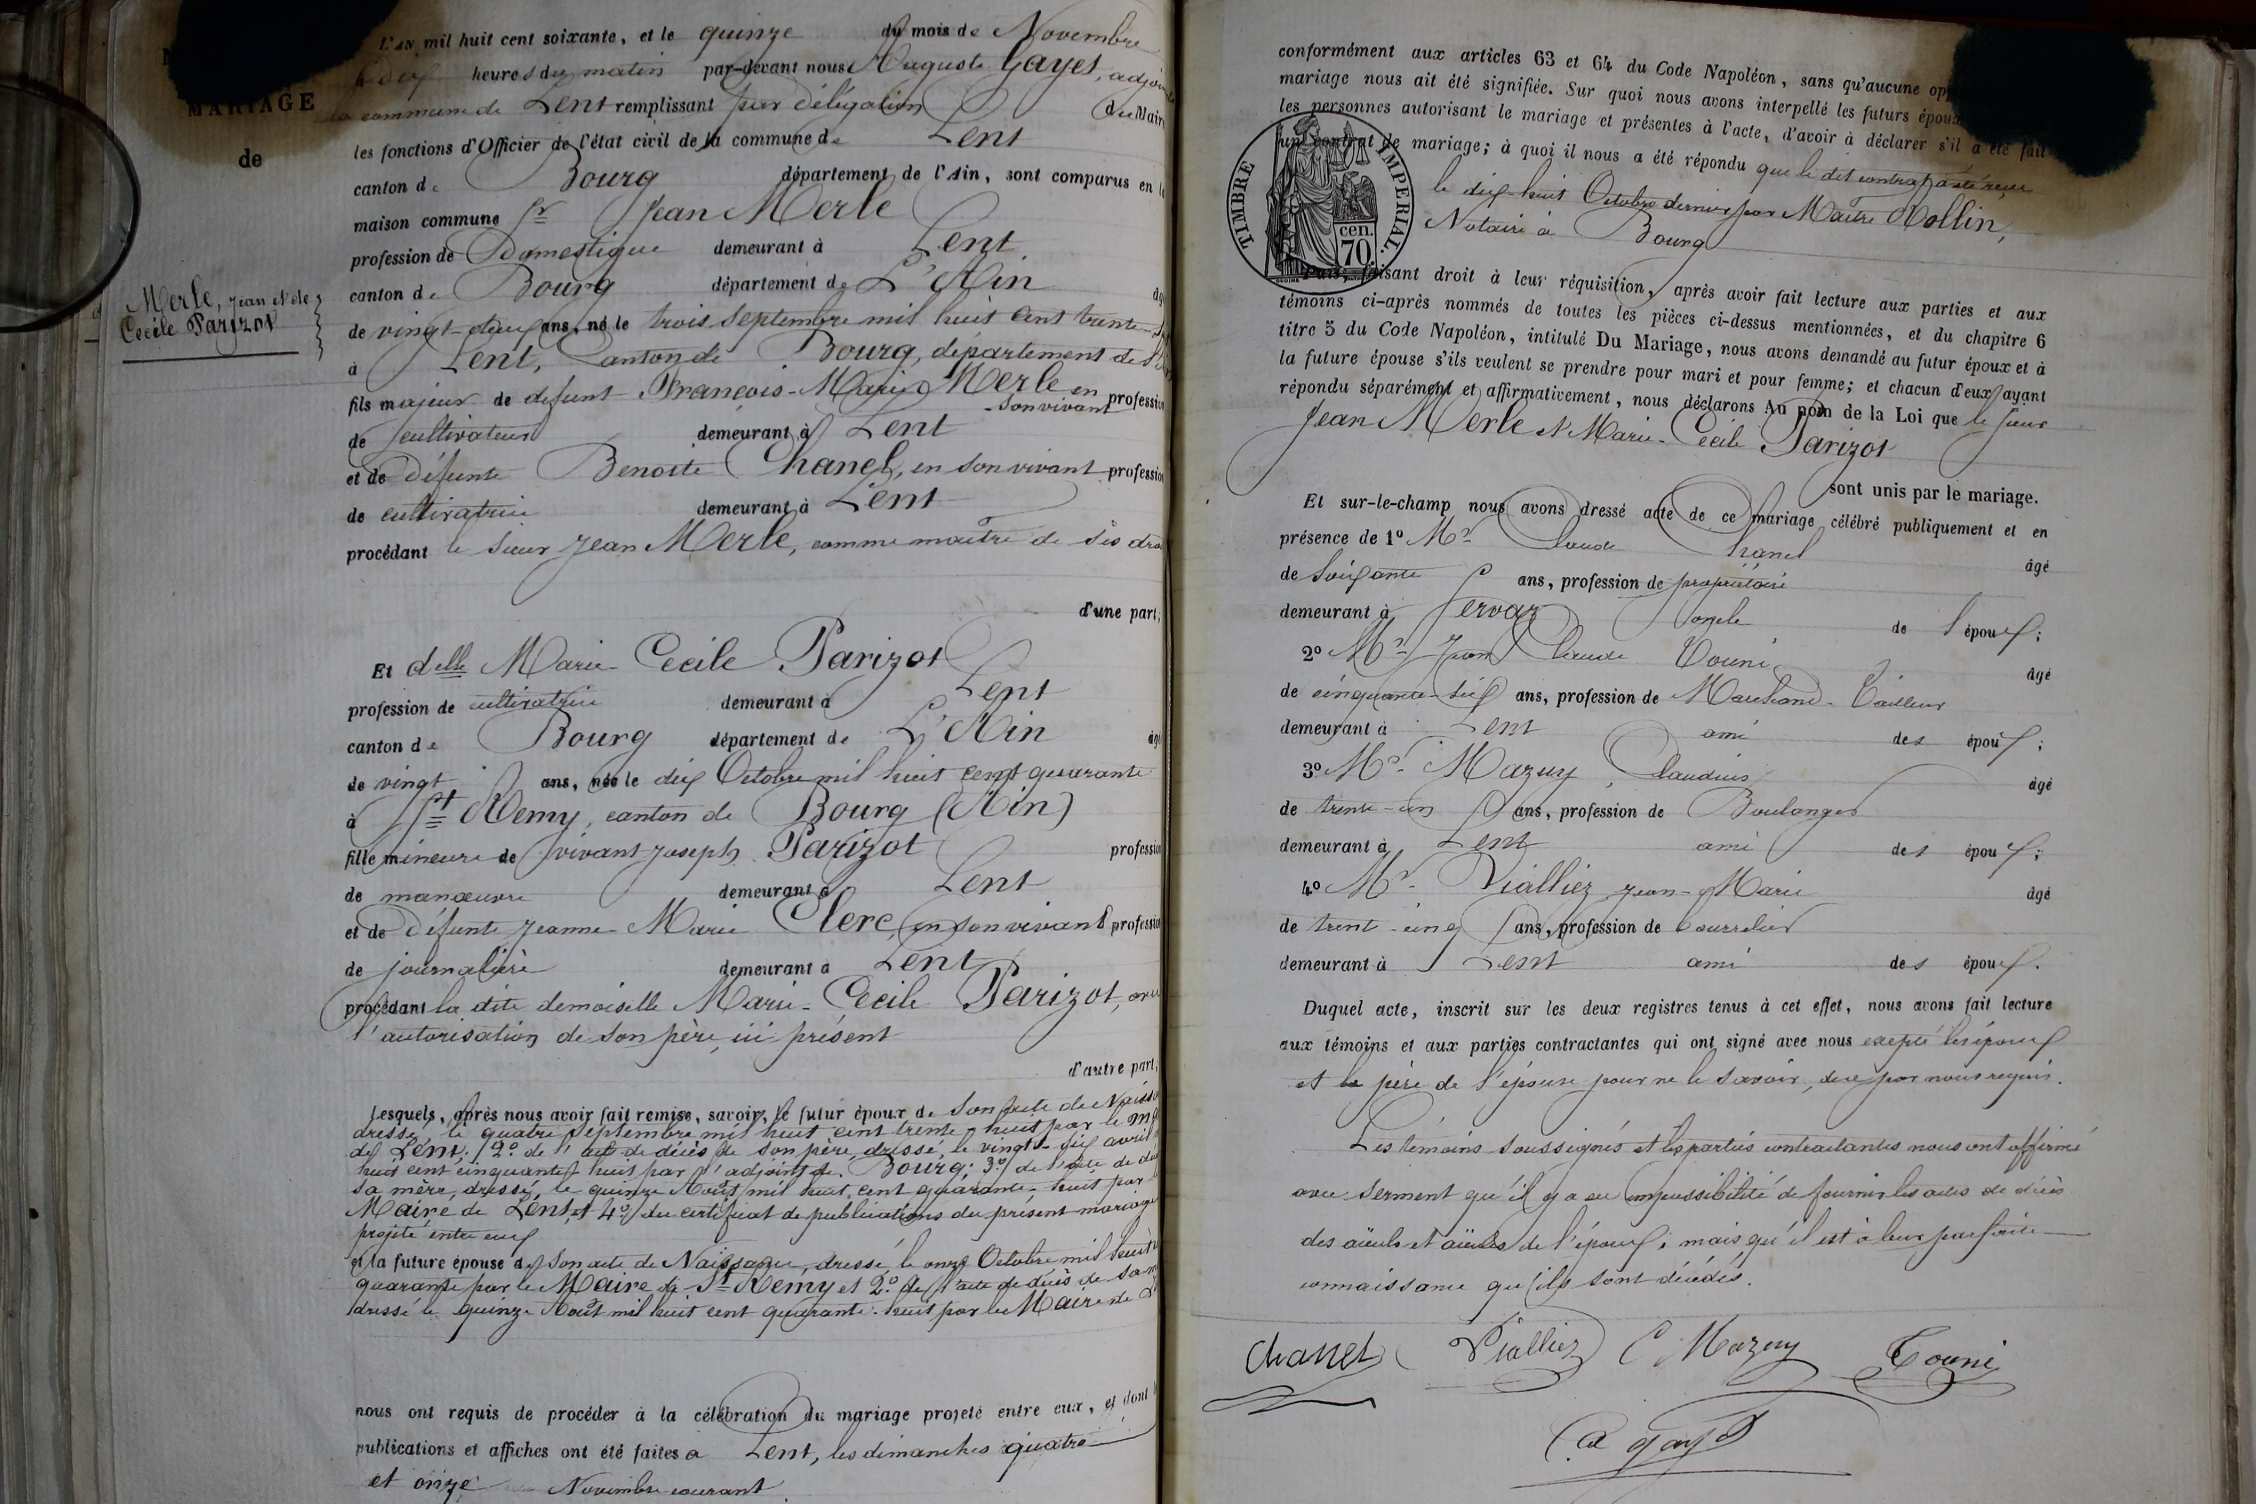 MARIAGE
de
Merle, Jean & dlle
Cecile Parizot
L'AN mil huit cent soixante, et le quinze du mois de Novembre
à dix heures du matin par-devant nous Auguste Gayet, adjoint
la commune de Lent remplissant par délégation du Maire
les fonctions d'Officier de l'état civil de la commune de Lent
canton de Bourg département de l'Ain, sont comparus en la
maison commune Sr Jean Merle
profession de Domestique demeurant à Lent
canton de Bourg département de L'Ain âgé
de vingt-deux ans, né le trois septembre mil huit cent trente-
à Lent, Canton de Bourg, département de l'
fils majeur de defunt François-Marie Merle en son vivant profession
de cultivateur demeurant à Lent
et de défunte Benoite Chanel, en son vivant profession
de cultivatrice demeurant à Lent
procédant le sieur Jean Merle, comme maître de ses
d'une part;
Et delle Marie-Cecile Parizot
profession de cultivatrice demeurant à Lent
canton de Bourg département de L'Ain âgé
de vingt ans, née le dix Octobre mil huit cent quarante
à St Remy, canton de Bourg (Ain)
fille mineure de vivant Joseph Parizot profession
de manœuvre demeurant à Lent
et de Défunte Jeanne-Marie Clerc, en son vivant profession
de journalière demeurant à Lent
procédant la dite demoiselle Marie-Cecile Parizot, avec
l'autorisation de son père, ici présent
d'autre part,
Lesquels, après nous avoir fait remise, savoir, le futur époux de son acte de Naiss
dressé, le quatre septembre mil huit cent trente-huit par le
de Lent; 2o de l'acte de décès de son père, dressé, le vingt-six avril
huit cent cinquante huit par l'adjoint de Bourg; 3o de l'acte de
sa mère, dressé, le quinze Août mil huit cent quarante-huit par
Maire de Lent et 4o du certificat de publications du présent mariage
projeté entre eux
et la future épouse de son acte de Naissance, dressé, le onze Octobre mil huit
quarante par le Maire de St Remy et 2o de l'acte de décès de sa
dressé le quinze Août mil huit cent quarante-huit par le Maire de
nous ont requis de procéder à la célébration du mariage projeté entre eux, et dont
publications et affiches ont été faites à Lent, les dimanches quatre
et onze Novembre courant.
conformément aux articles 63 et 64 du Code Napoléon, sans qu'aucune op
mariage nous ait été signifiée. Sur quoi nous avons interpellé les futurs époux
les personnes autorisant le mariage et présentes à l'acte, d'avoir à déclarer s'il a été fait
un contrat de mariage; à quoi il nous a été répondu que le dit contrat a été reçu
le dix-huit Octobre dernier par Maître Mollin,
Notaire à Bourg
TIMBRE IMPERIAL.
cen.
70.
Puis, faisant droit à leur réquisition, après avoir fait lecture aux parties et aux
témoins ci-après nommés de toutes les pièces ci-dessus mentionnées, et du chapitre 6
titre 5 du Code Napoléon, intitulé Du Mariage, nous avons demandé au futur époux et à
la future épouse s'ils veulent se prendre pour mari et pour femme; et chacun d'eux ayant
répondu séparément et affirmativement, nous déclarons Au nom de la Loi que le sieur
Jean Merle & Marie-Cecile Parizot
sont unis par le mariage.
Et sur-le-champ nous avons dressé acte de ce mariage célébré publiquement et en
présence de 1o Mr Claude Chanel âgé
de soixante ans, profession de propriétaire
demeurant à Servas oncle de l'époux;
2o Mr Jean Claude Touni âgé
de cinquante-six ans, profession de Marchand-Tailleur
demeurant à Lent ami des époux;
3o Mr Mazuy Claudius âgé
de trente-un ans, profession de Boulanger
demeurant à Lent ami des époux;
4o Mr Vialliez Jean-Marie âgé
de trent-cinq ans, profession de Bourrelier
demeurant à Lent ami des époux.
Duquel acte, inscrit sur les deux registres tenus à cet effet, nous avons fait lecture
aux témoins et aux parties contractantes qui ont signé avec nous excepté les époux
et le père de l'épouse pour ne le savoir, de ce par nous requis.
Les témoins soussignés et les parties contractantes nous ont affirmé
avec serment qu'il y a eu impossibilité de fournir les actes de décès
des aïeuls et aïeules de l'époux, mais qu'il est à leur parfaite
connaissance qu'ils sont décédés.
Chanel Vialliez C Mazuy Touni
A gayet